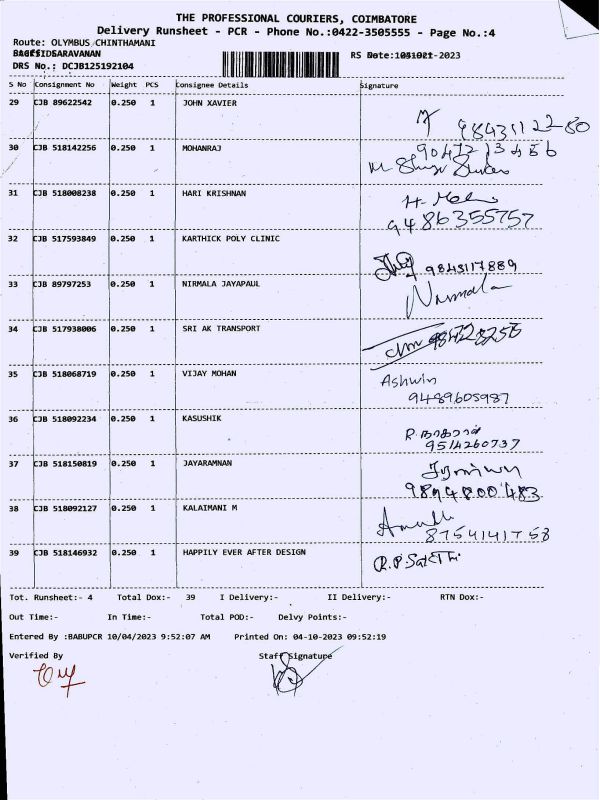 THE PROFESSIONAL COURIERS, COIMBATORE
Delivery Runsheet - PCR - Phone No.:0422-3505555 - Page No.:4
Route: OLYMBUS CHINTHAMANI
SARAVANAN
RS Date: -2023
DRS No.: DCJB125192104
S No Consignment No Weight PCS Consignee Details Signature
29 CJB 89622542 0.250 1 JOHN XAVIER
9843112280
30 CJB 518142256 0.250 1 MOHANRAJ 9047213456
31 CJB 518008238 0.250 1 HARI KRISHNAN
9486355757
32 CJB 517593849 0.250 1 KARTHICK POLY CLINIC
9843117889
33 CJB 89797253 0.250 1 NIRMALA JAYAPAUL
Nirmala
34 CJB 517938006 0.250 1 SRI AK TRANSPORT
35 CJB 518068719 0.250 1 VIJAY MOHAN
Ashwin
9489605987
36 CJB 518092234 0.250 1 KASUSHIK
9514260737
37 CJB 518150819 0.250 1 JAYARAMNAN
9894800483
38 CJB 518092127 0.250 1 KALAIMANI M
8754141758
39 CJB 518146932 0.250 1 HAPPILY EVER AFTER DESIGN
R.P.Sakthi
Tot. Runsheet:- 4 Total Dox:- 39 I Delivery:- II Delivery:- RTN Dox:-
Out Time:- In Time:- Total POD:- Delvy Points:-
Entered By :BABUPCR 10/04/2023 9:52:07 AM Printed On: 04-10-2023 09:52:19
Verified By Staff Signature